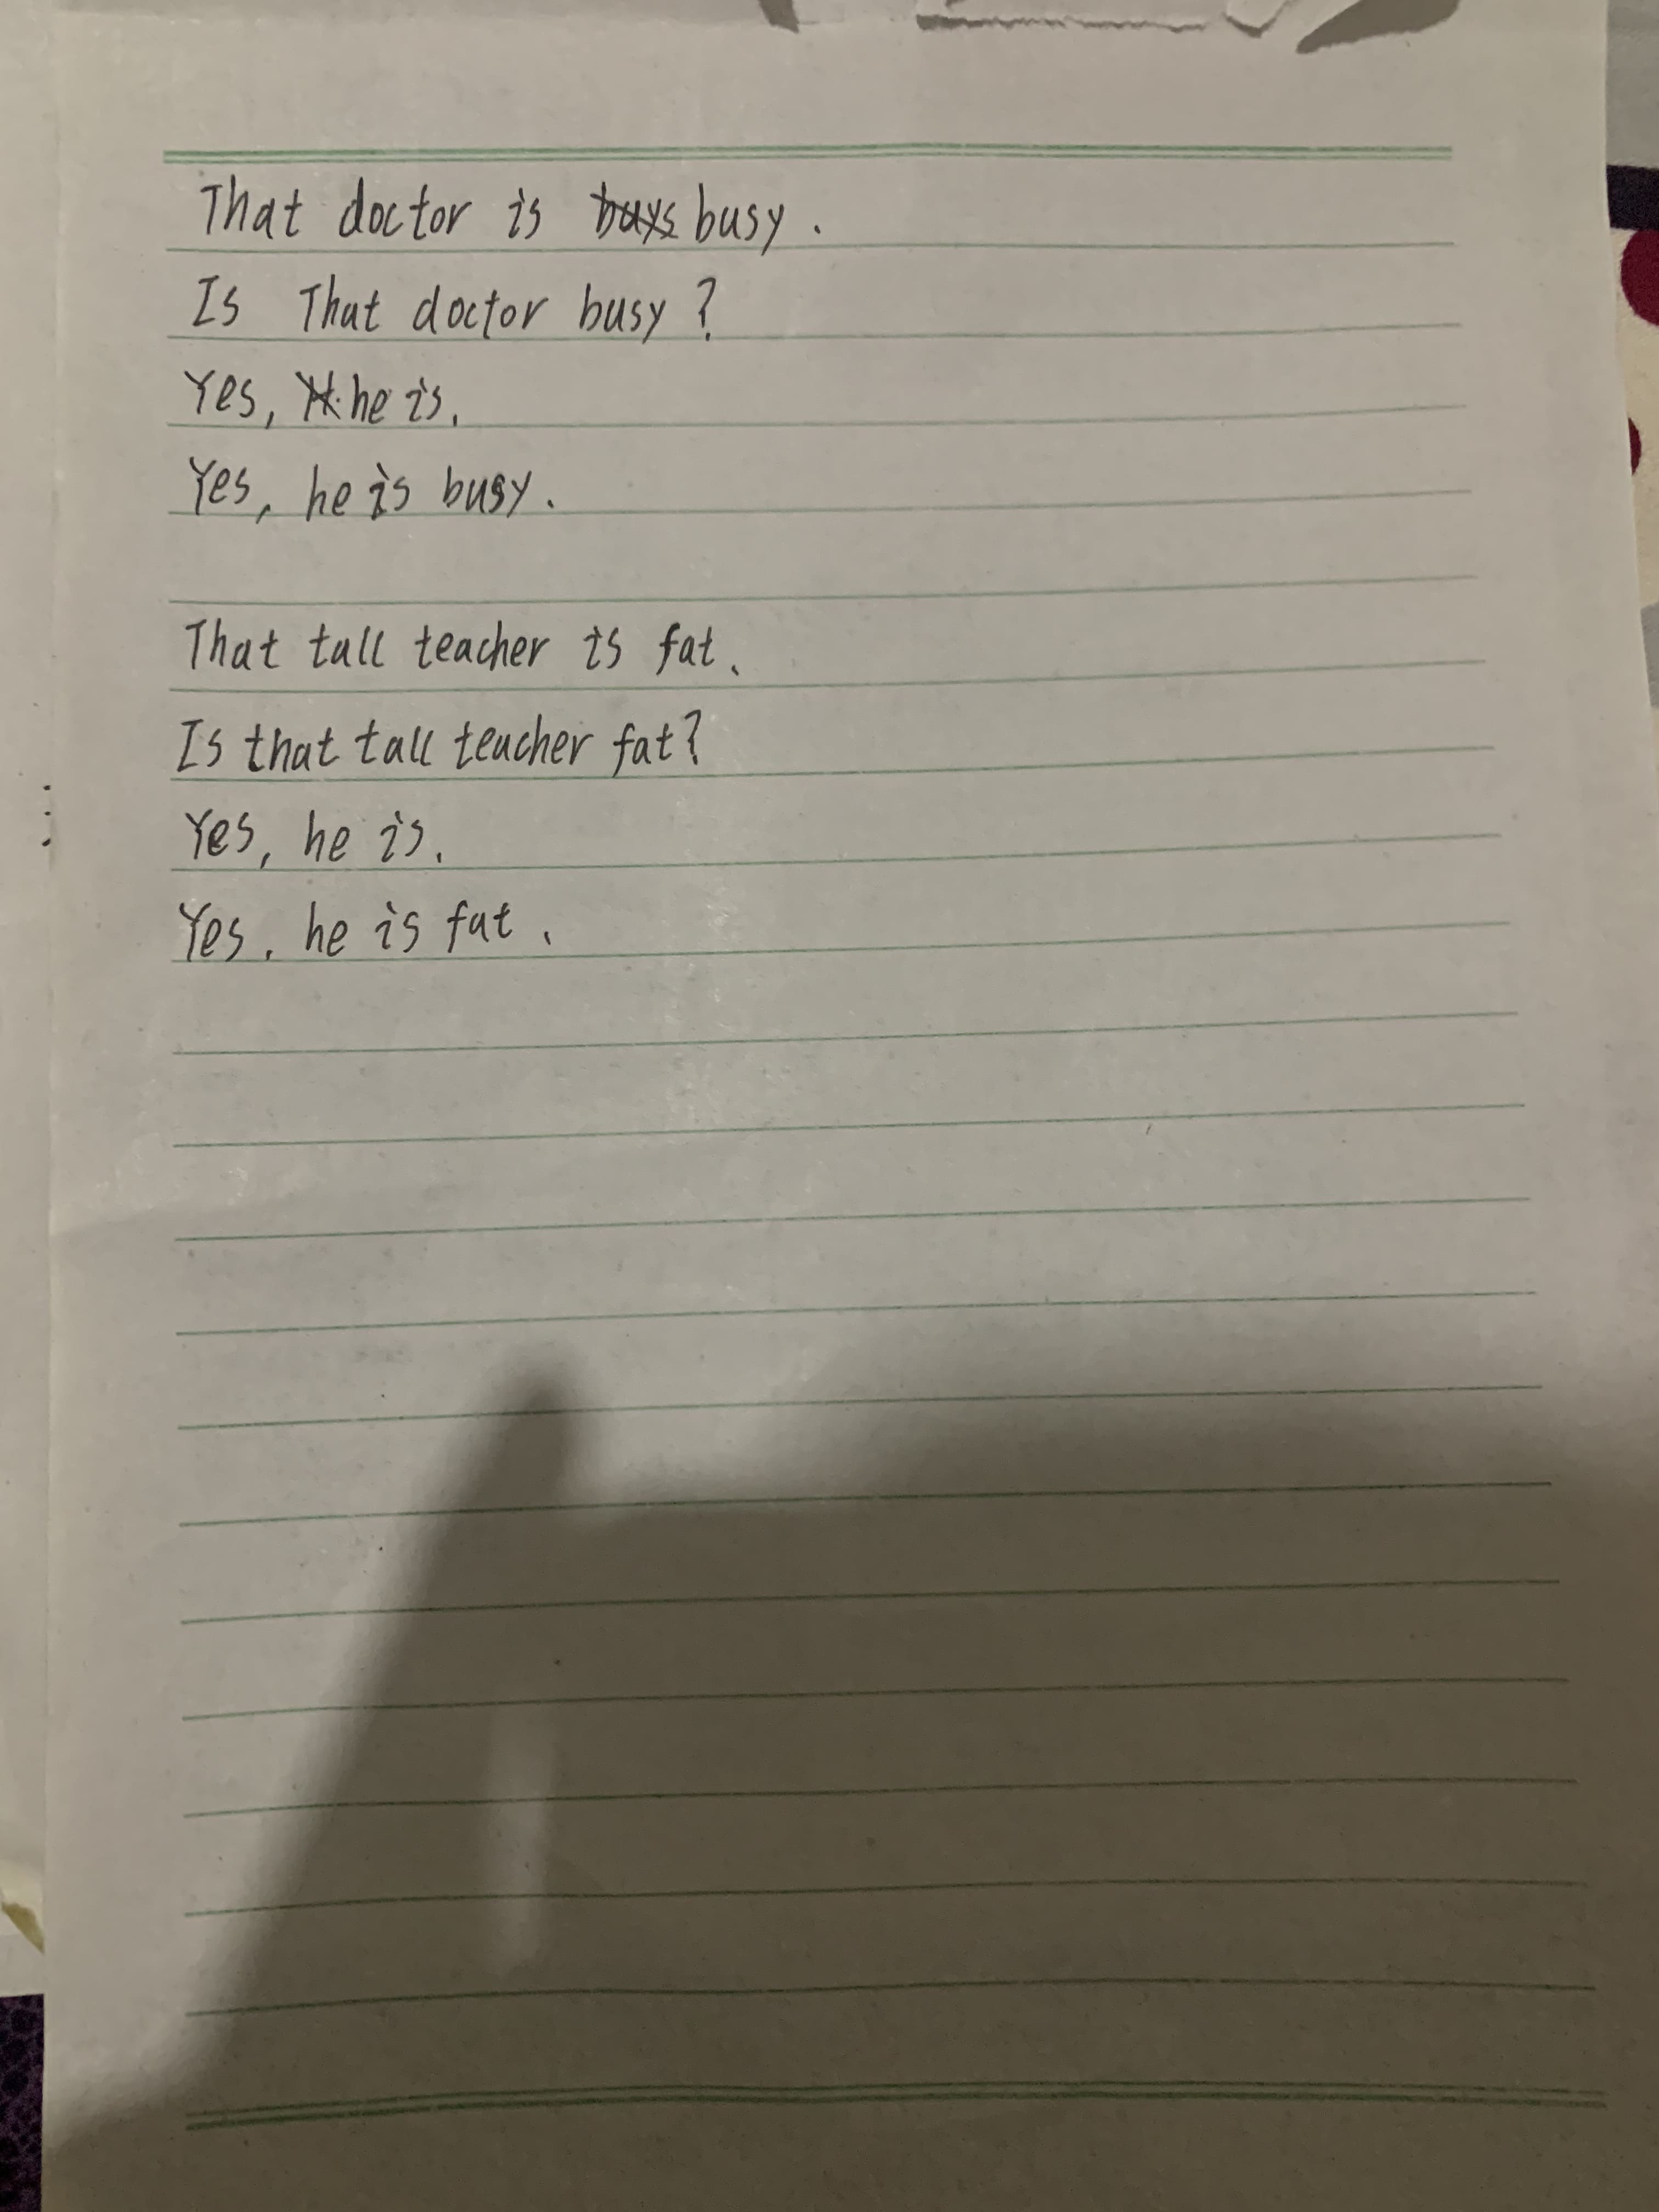 That doctor is busy.
Is That doctor busy?
Yes, he is.
Yes, he is busy.
That tall teacher is fat.
Is that tall teacher fat?
Yes, he is.
Yes, he is fat.